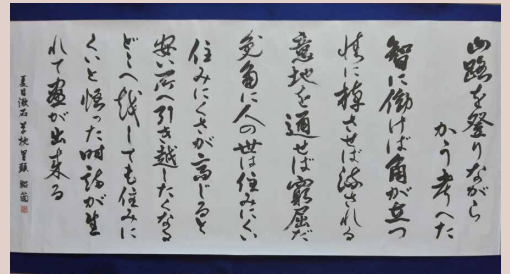 山路を登りながら
かう考へた
智に働けば角が立つ
情に棹させば流される
意地を通せば窮屈だ
兎角に人の世は住みにくい
住みにくさが高じると
安い所へ引き越したくなる
どこへ越しても住みに
くいと悟った時詩が生
れて画が出来る
夏目漱石 草枕 冒頭